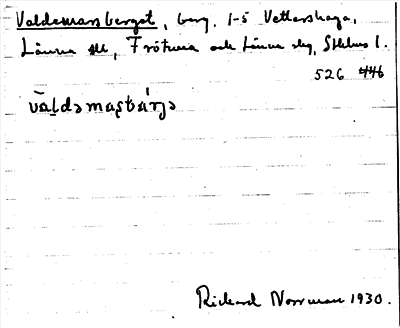 Valdemarsberget, berg, 1-5 Vettershaga,
Länna sn, Frötuna och Länna slg, Sthlms l.
526 446
vàldəmaʂbárjə
Rickard Norrman 1930.